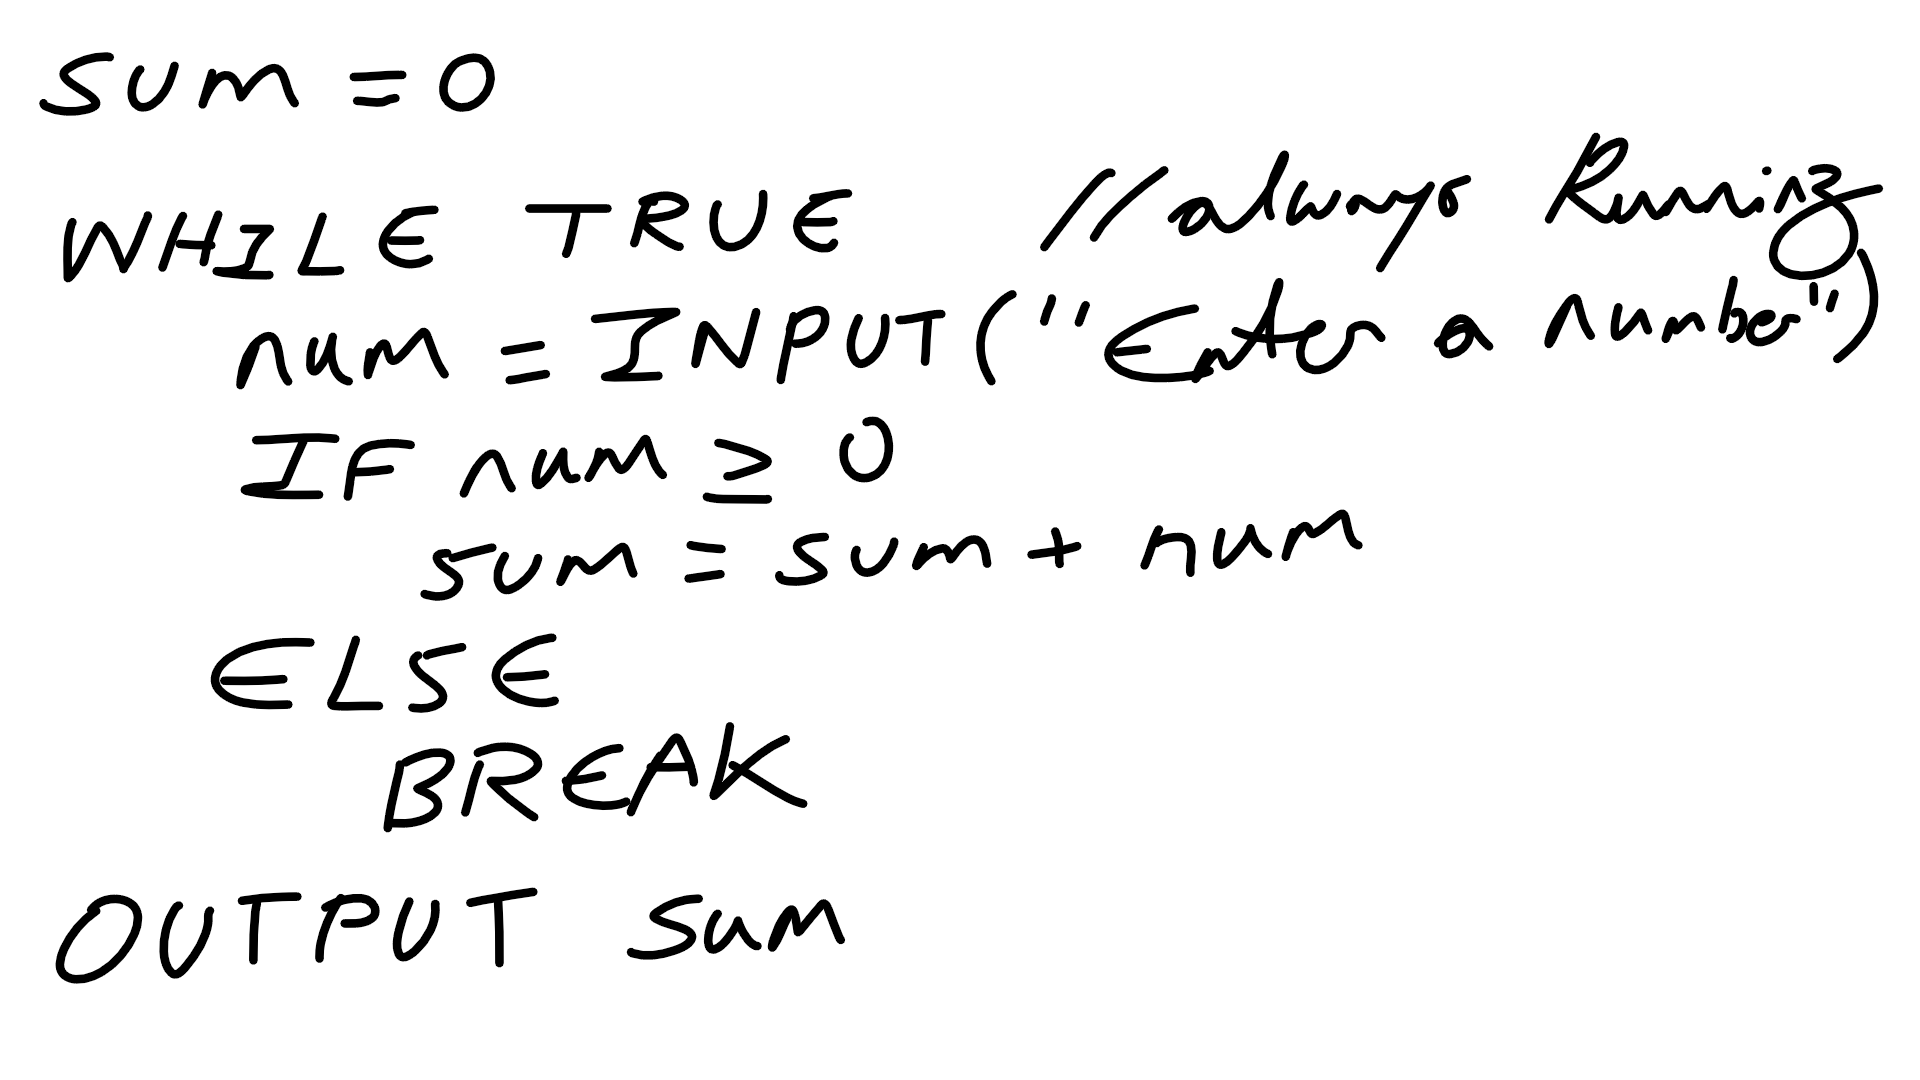 sum = 0
WHILE TRUE //always Running
num = INPUT("Enter a number")
IF num ≥ 0
sum = sum + num
ELSE
BREAK
OUTPUT sum